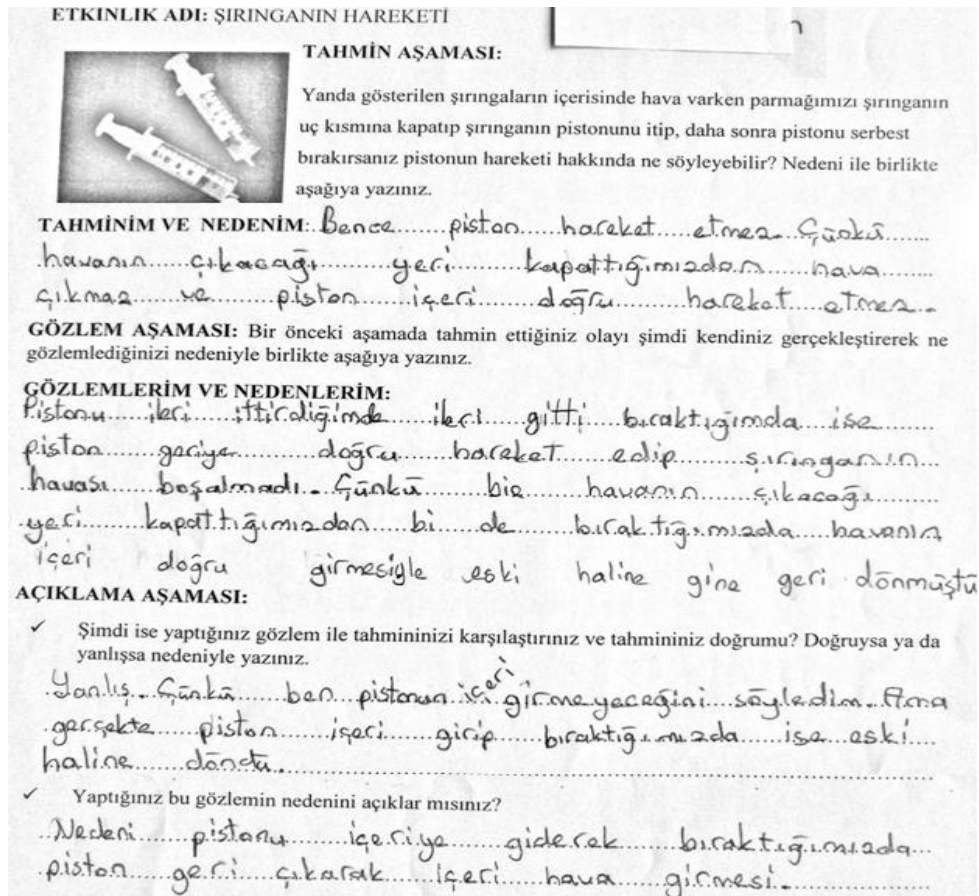 ETKİNLİK ADI: ŞIRINGANIN HAREKETİ
TAHMİN AŞAMASI:
Yanda gösterilen şırıngaların içerisinde hava varken parmağımızı şırınganın
uç kısmına kapatıp şırınganın pistonunu itip, daha sonra pistonu serbest
bırakırsanız pistonun hareketi hakkında ne söyleyebilir? Nedeni ile birlikte
aşağıya yazınız.
TAHMİNİM VE NEDENİM: Bence piston hareket etmez. Çünkü
havanın çıkacağı yeri kapattığımızdan hava
çıkmaz ve piston içeri doğru hareket etmez.
GÖZLEM AŞAMASI: Bir önceki aşamada tahmin ettiğiniz olayı şimdi kendiniz gerçekleştirerek ne
gözlemlediğinizi nedeniyle birlikte aşağıya yazınız.
GÖZLEMLERİM VE NEDENLERİM:
Pistonu ileri ittirdiğimde ileri gitti bıraktığımda ise
piston geriye doğru hareket edip şırınganın
havası boşalmadı. Çünkü bir havanın çıkacağı
yeri kapattığımızdan bi de bıraktığımızda havanın
içeri doğru girmesiyle eski haline gine geri dönmüştü
AÇIKLAMA AŞAMASI:
✓ Şimdi ise yaptığınız gözlem ile tahmininizi karşılaştırınız ve tahmininiz doğrumu? Doğruysa ya da
yanlışsa nedeniyle yazınız.
Yanlış. Çünkü ben pistonun içeri girmeyeceğini söyledim. Ama
gerçekte piston içeri girip bıraktığımızda ise eski
haline döndü.
✓ Yaptığınız bu gözlemin nedenini açıklar mısınız?
Nedeni pistonu içeriye giderek bıraktığımızda
piston geri çıkarak içeri hava girmesi.